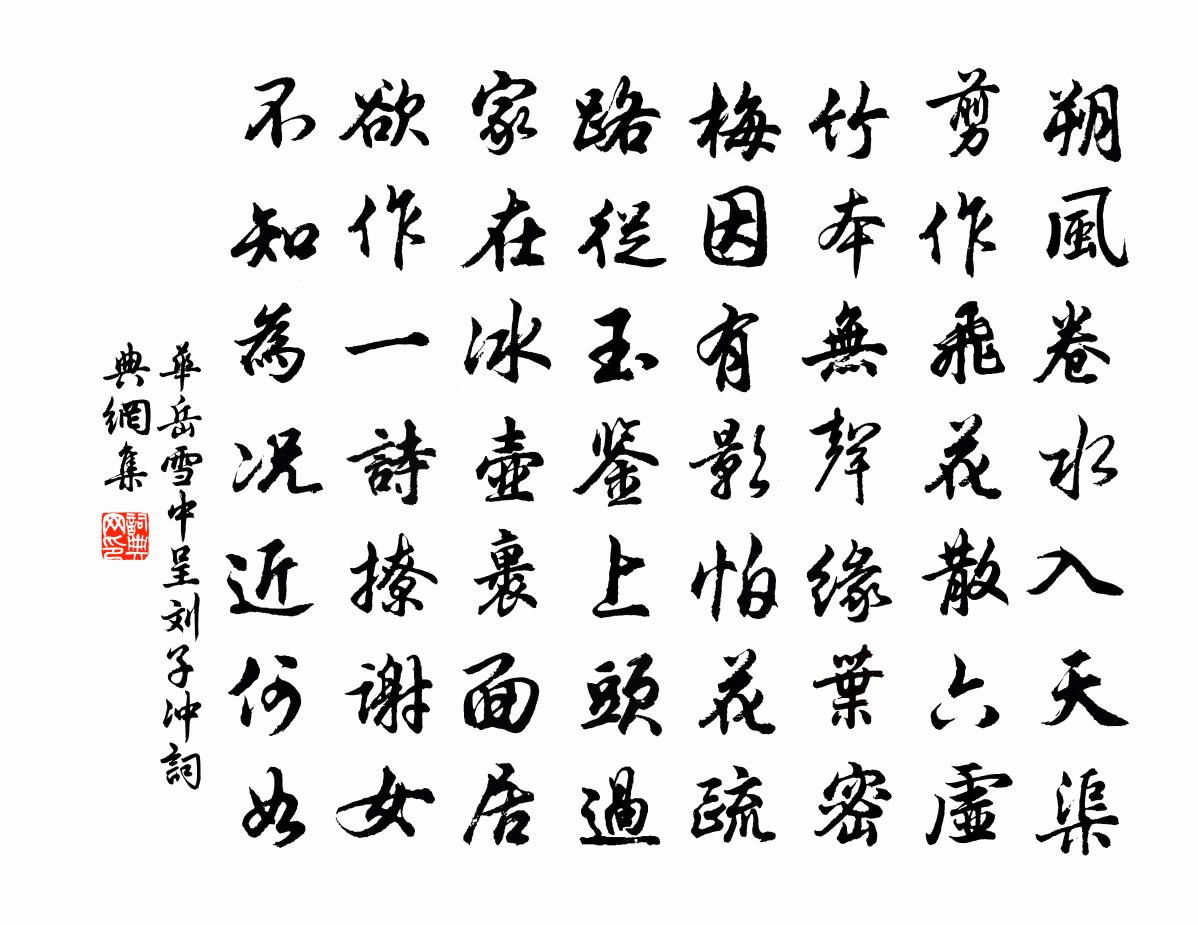 朔風卷水入天渠
剪作飛花散六虛
竹本無聲緣葉密
梅因有影怕花疏
路從玉鉴上頭過
家在冰壺裏面居
欲作一詩撩謝女
不知為况近何如
華岳雪中呈刘子冲詞
典網集
詞典